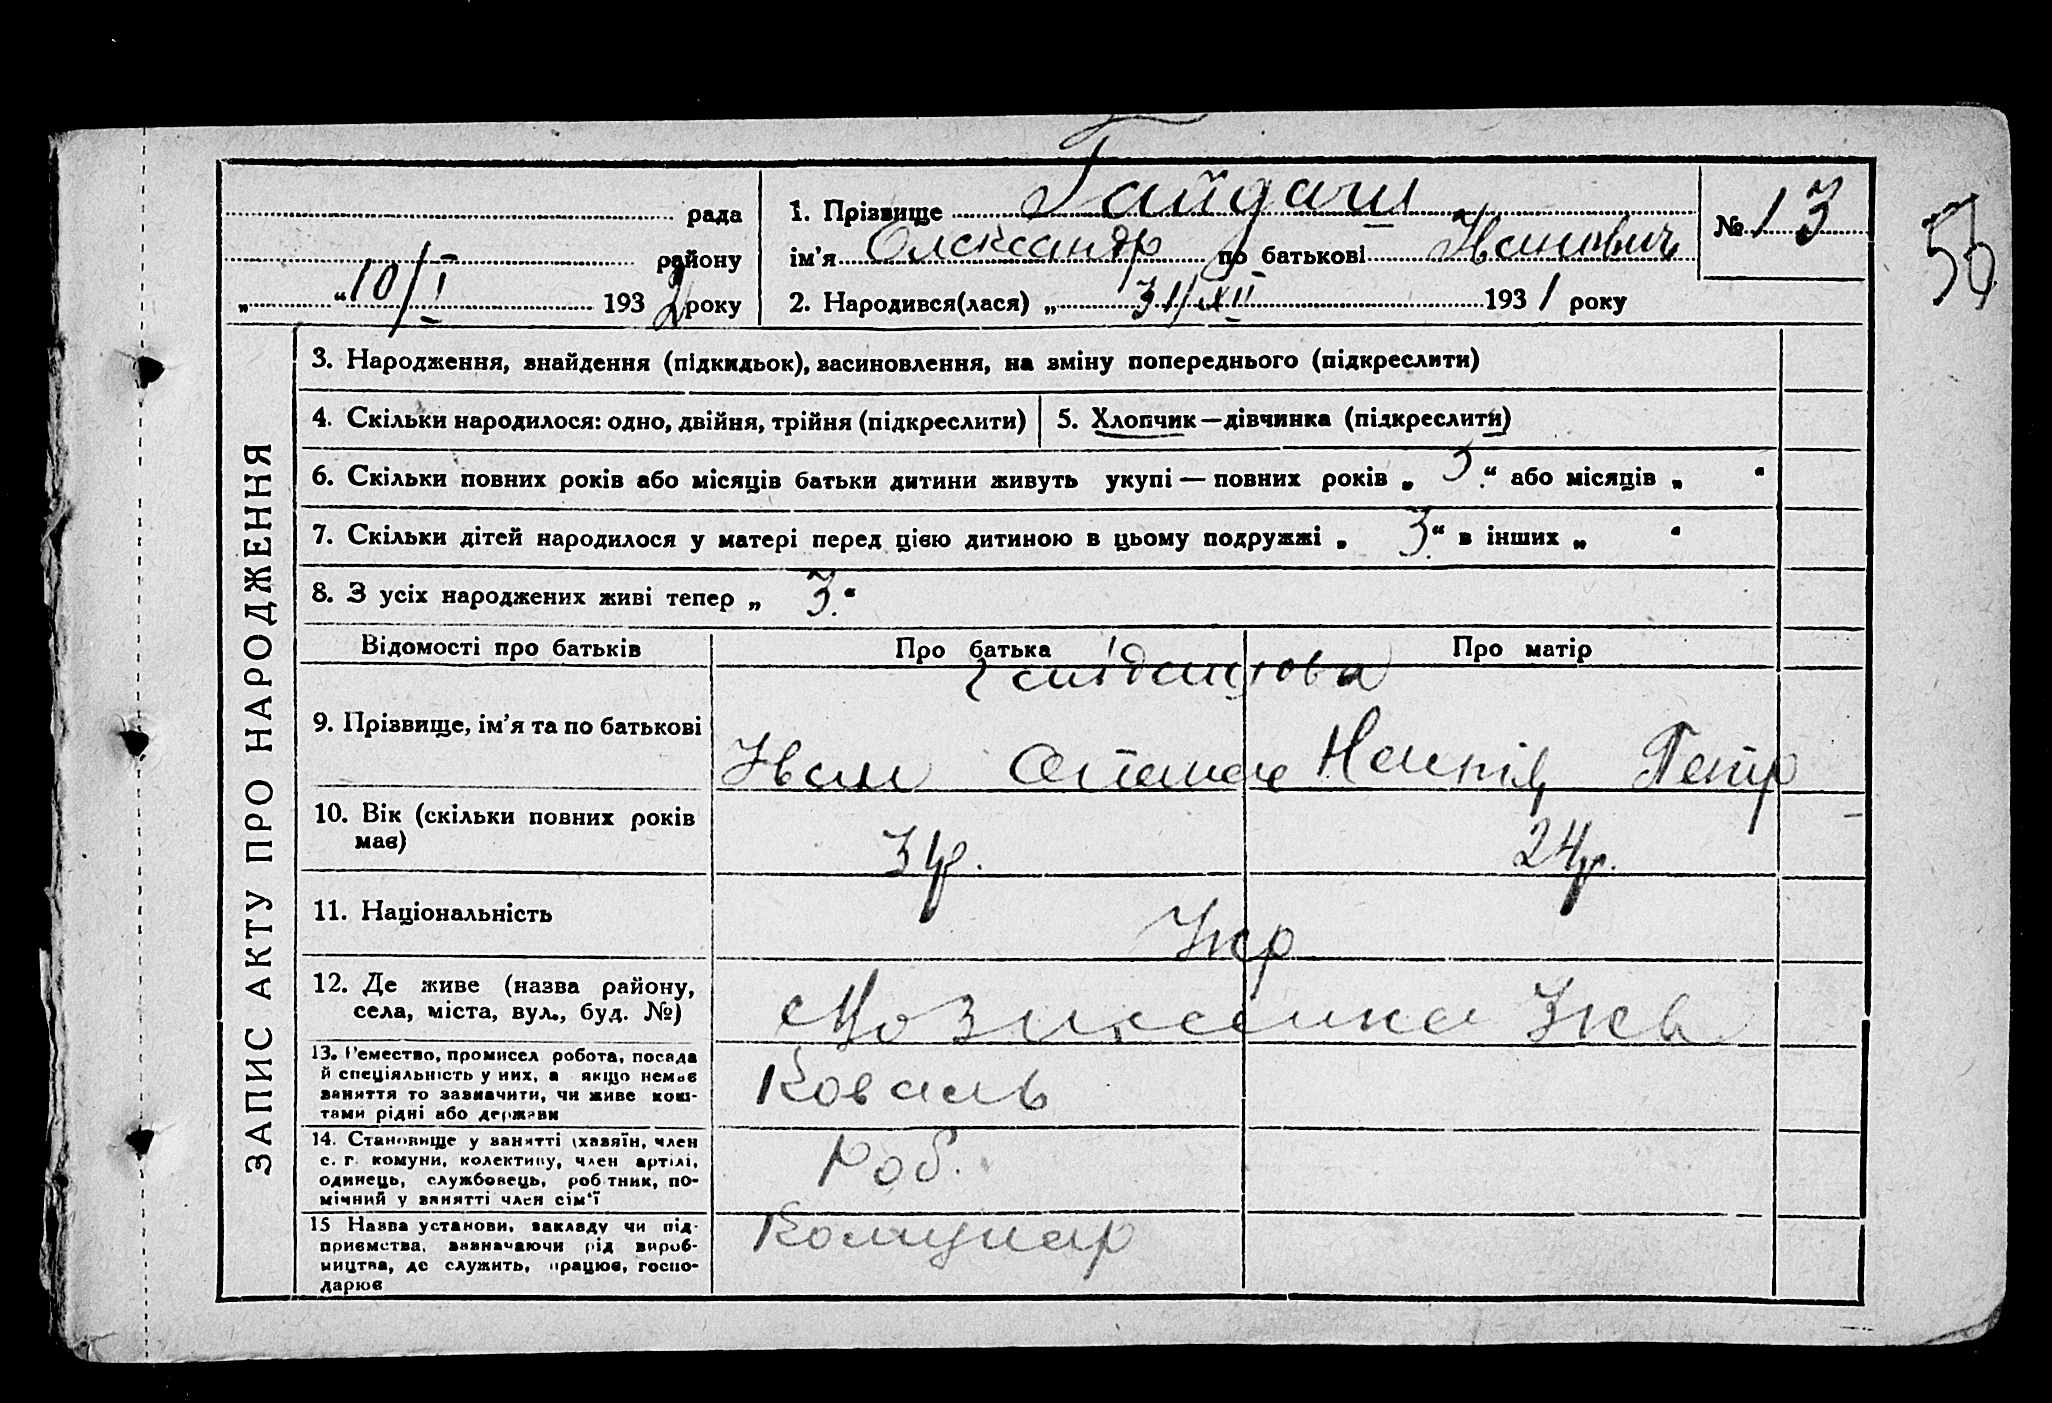 рада
1. Прізвище Гайдаш
№ 13
56
району
ім'я Олександр по батькові Иванович
„ “ 10/I 1932 року
2. Народився(лася) „ 31/XII 1931 року
ЗАПИС АКТУ ПРО НАРОДЖЕННЯ
3. Народження, знайдення (підкидьок), засиновлення, на зміну попереднього (підкреслити)
4. Скільки народилося: одно, двійня, трійня (підкреслити)
5. Хлопчик—дівчинка (підкреслити)
6. Скільки повних років або місяців батьки дитини живуть укупі — повних років „ “ або місяців „ “
7. Скільки дітей народилося у матері перед цією дитиною в цьому подружжі „ 3 “ в інших „ “
8. З усіх народжених живі тепер „ 3 “
Відомості про батьків
Про батька
Про матір
9. Прізвище, ім'я та по батькові
Иван
Петр
10. Вік (скільки повних років
має)
24р.
11. Національність
Укр
12. Де живе (назва району,
села, міста, вул., буд. №)
13. Ремество, промисел робота, посада
й спеціяльність у них, а якщо немає
заняття то зазначити, чи живе кош-
тами рідні або держави
Коваль
14. Становище у занятті (хазяїн, член
с. г. комуни, колективу, член артілі,
одинець, службовець, робтник, по-
мічний у занятті член сім'ї
Роб.
15 Назва установи, закладу чи під-
приємства, зазначаючи рід вироб-
ництва, де служить, працює, госпо-
дарює
Комунар